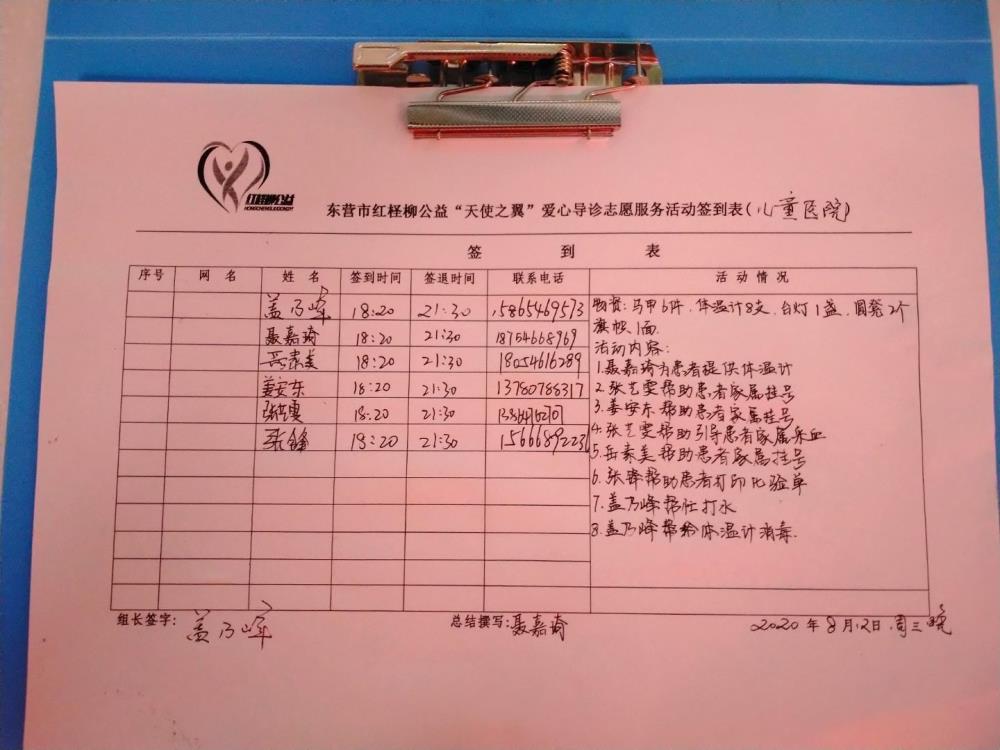 红柽柳公益
东营市红柽柳公益“天使之翼”爱心导诊志愿服务活动签到表(儿童医院)
签 到 表
序号 网 名 姓 名 签到时间 签退时间 联系电话 活 动 情 况
盖乃峰 18:20 21:30 15865469573
聂嘉琦 18:20 21:30 18754668969
岳素美 18:20 21:30 18054616289
姜安东 18:20 21:30 13780788317
张艺雯 18:20 21:30
张锋 18:20 21:30 15666892236
物资:马甲6件.体温计8支.台灯1盏.圆凳2个
旗帜1面.
活动内容:
1.聂嘉琦为患者提供体温计
2.张艺雯帮助患者家属挂号
3.姜安东帮助患者家属挂号
4.张艺雯帮助引导患者家属采血
5.岳素美帮助患者家属挂号
6.张锋帮助患者打印化验单
7.盖乃峰帮忙打水
8.盖乃峰帮给体温计消毒.
组长签字: 盖乃峰 总结撰写:聂嘉琦 2020年8月12日.周三晚